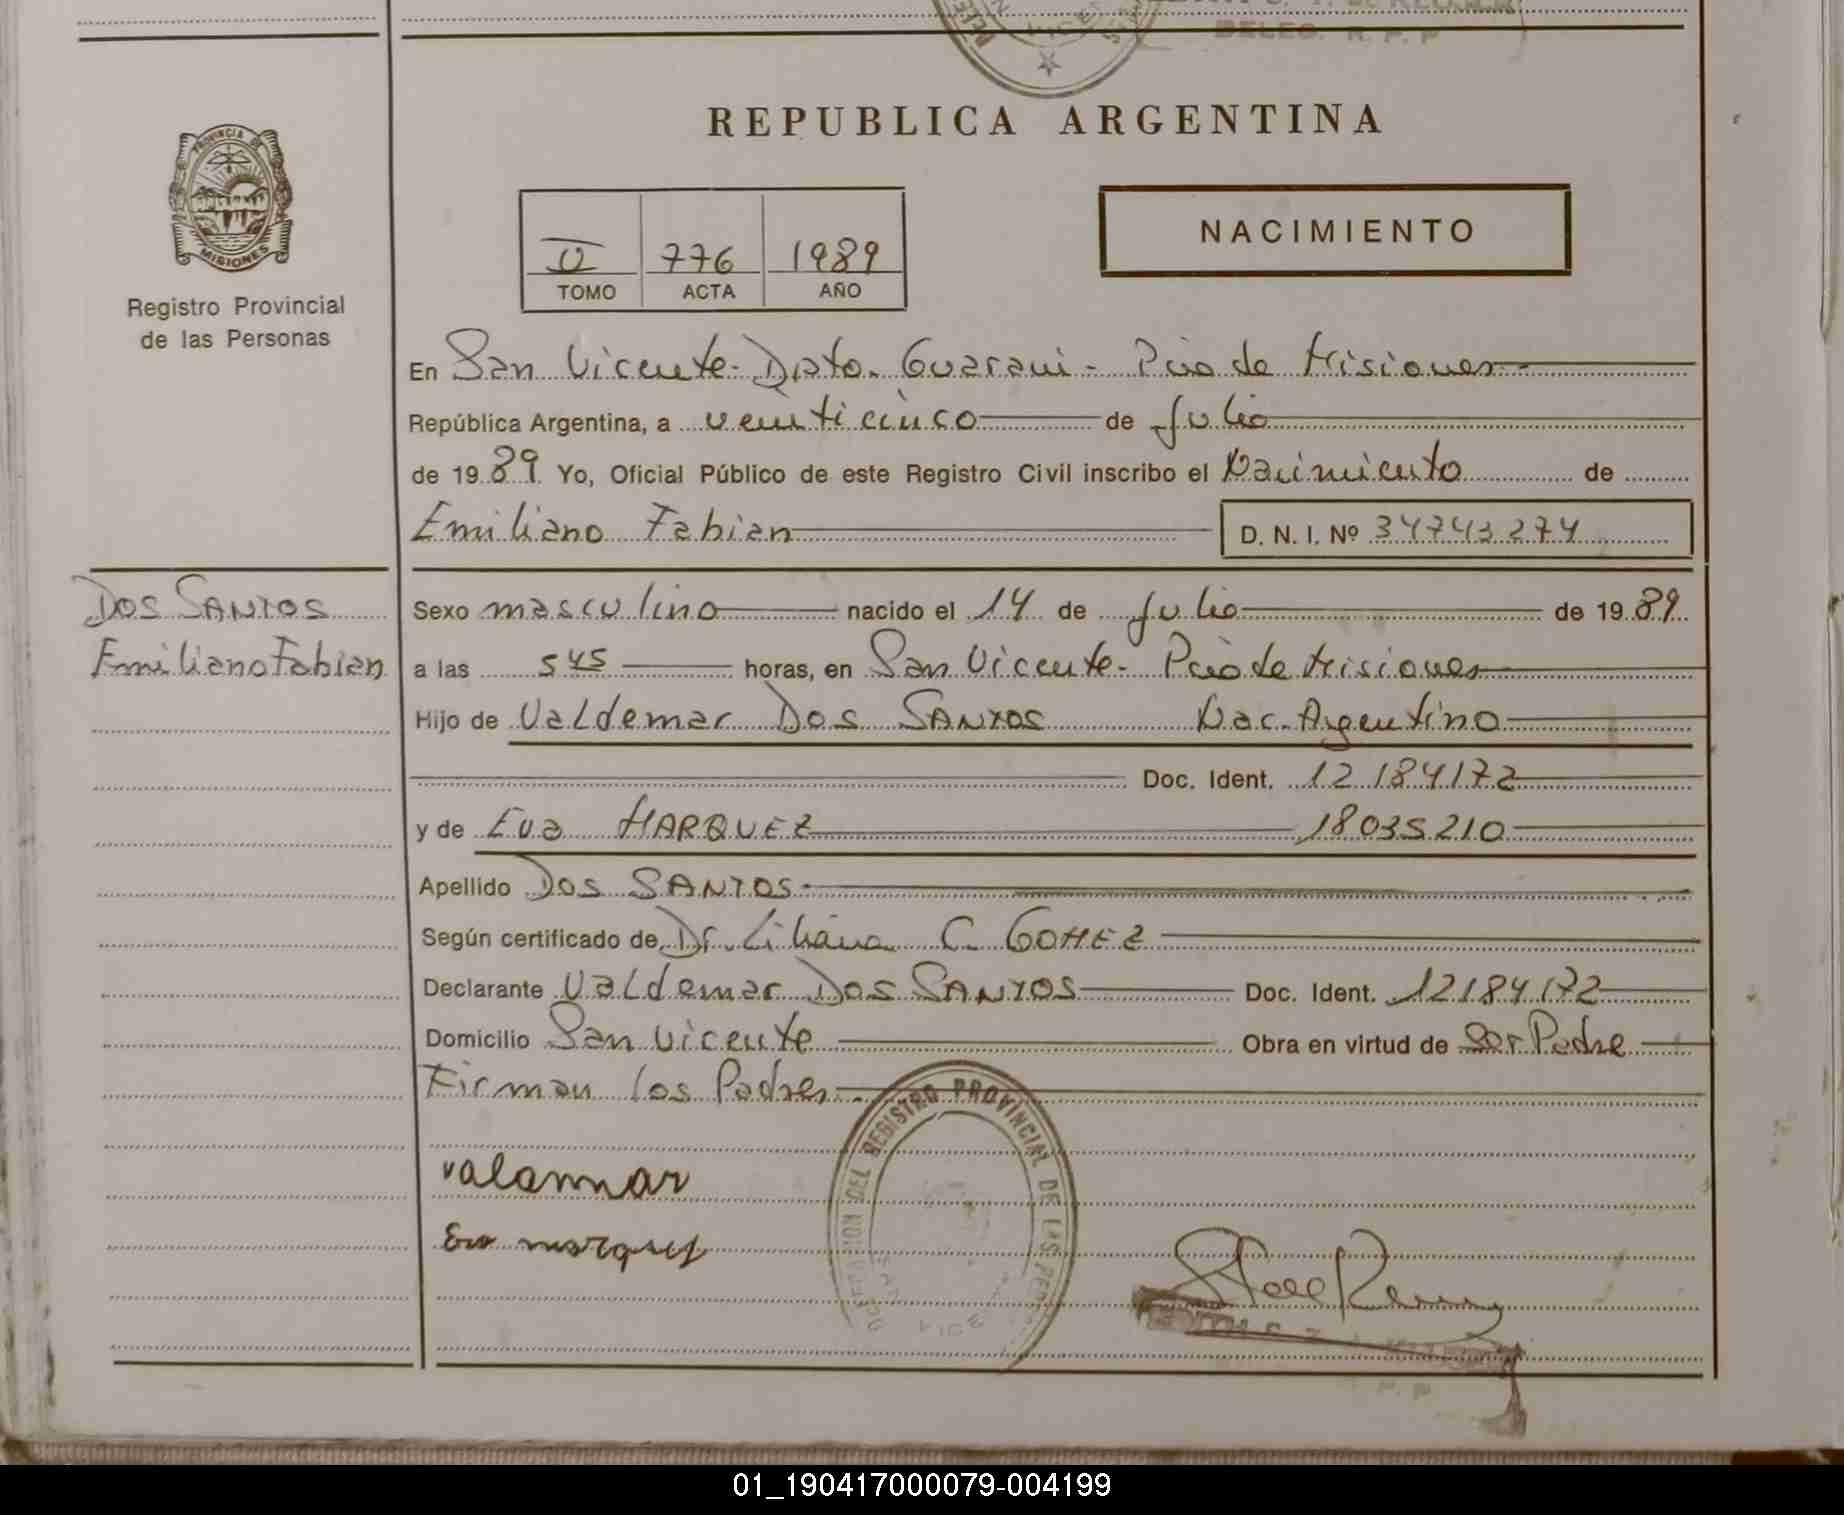 REPUBLICA ARGENTINA
PROVINCIA DE
MISIONES
Registro Provincial
de las Personas
II 776 1989
TOMO ACTA AÑO
NACIMIENTO
En San Vicente - Dpto. Guarani - Pcia de Misiones
República Argentina, a veinticinco de Julio
de 1989 Yo, Oficial Público de este Registro Civil inscribo el Nacimiento de
Emiliano Fabian D. N. I. Nº 34743274
DOS SANTOS
Emiliano Fabian
Sexo masculino nacido el 14 de Julio de 1989
a las 5 45 horas, en San Vicente - Pcia de Misiones
Hijo de Valdemar DOS SANTOS Nac. Argentino
Doc. Ident. 12184172
y de Eva MARQUEZ 18035210
Apellido DOS SANTOS
Según certificado de Dr. Liliana C. GOMEZ
Declarante Valdemar DOS SANTOS Doc. Ident. 12184172
Domicilio San Vicente Obra en virtud de Ser Padre
Firman los Padres
DEL REGISTRO PROVINCIAL DE LAS
Eva marquez
01_190417000079-004199